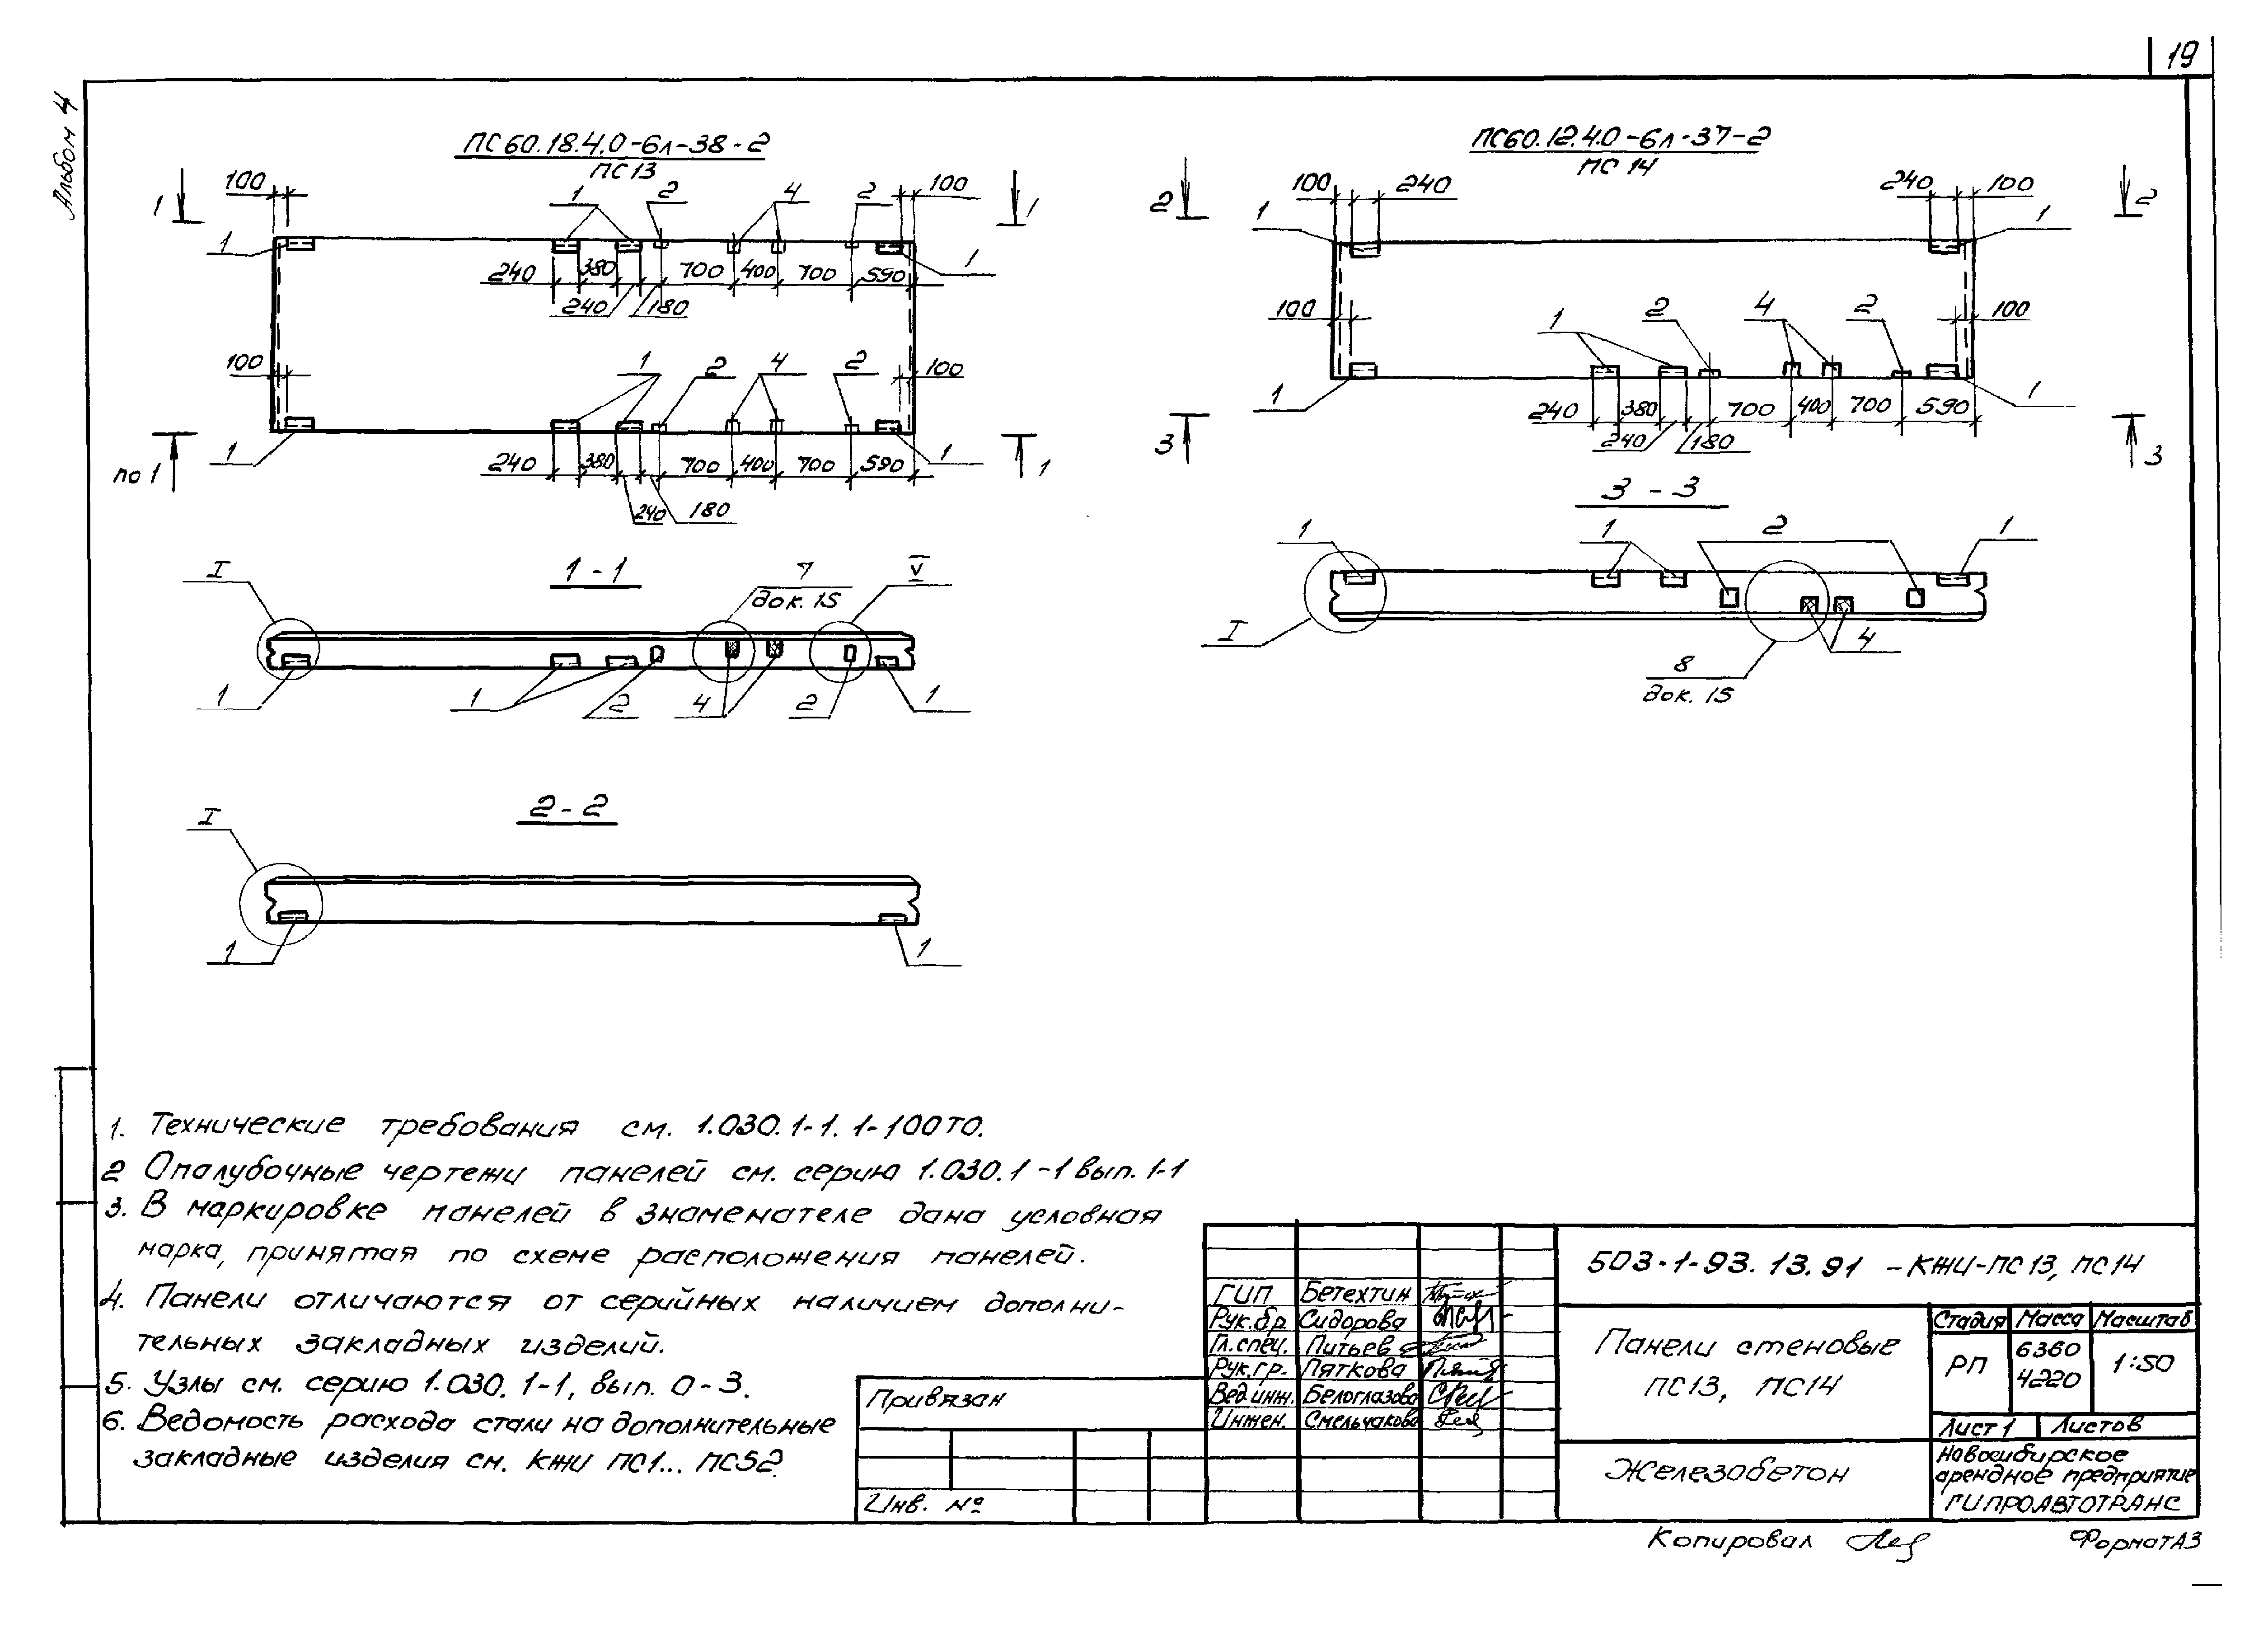 19
Альбом 4
ПС60.18.4.0-6л-38-2
ПС13
1 100 1 2 4 2 100 1
1 1
240 380 700 400 700 590
240 180
100 1 2 4 2 100
1 1
по 1 240 380 700 400 700 590 1
240 180
ПС60.12.4.0-6л-37-2
ПС 14
2 100 240 240 100 2
1 1
100 1 2 4 2 100
1 1
240 380 700 400 700 590
3 240 180 3
1-1
I 7 V
док. 15
1 1 2 4 2 1
3 - 3
1 1 2 1
I 4
8
док. 15
2-2
I
1 1
1. Технические требования см. 1.030.1-1. 1-100ТО.
2 Опалубочные чертежи панелей см. серию 1.030.1-1 вып. 1-1
3. В маркировке панелей в знаменателе дана условная
марка, принятая по схеме расположения панелей.
4. Панели отличаются от серийных наличием дополни-
тельных закладных изделий.
5. Узлы см. серию 1.030.1-1, вып. 0-3.
6. Ведомость расхода стали на дополнительные
закладные изделия см. КЖИ ПС1... ПС52.
Привязан
Инв. №
ГИП Бетехтин
Рук.бр. Сидорова
Гл.спец. Питьев
Рук.гр. Пяткова
Вед.инж. Белоглазова
Инжен. Смельчакова
503-1-93.13.91 -КЖИ-ПС13, ПС14
Панели стеновые
ПС13, ПС14
Стадия Масса Масштаб
РП 6360 1:50
4220
Лист 1 Листов
Железобетон
Новосибирское
арендное предприятие
ГИПРОАВТОТРАНС
Копировал
Формат А3